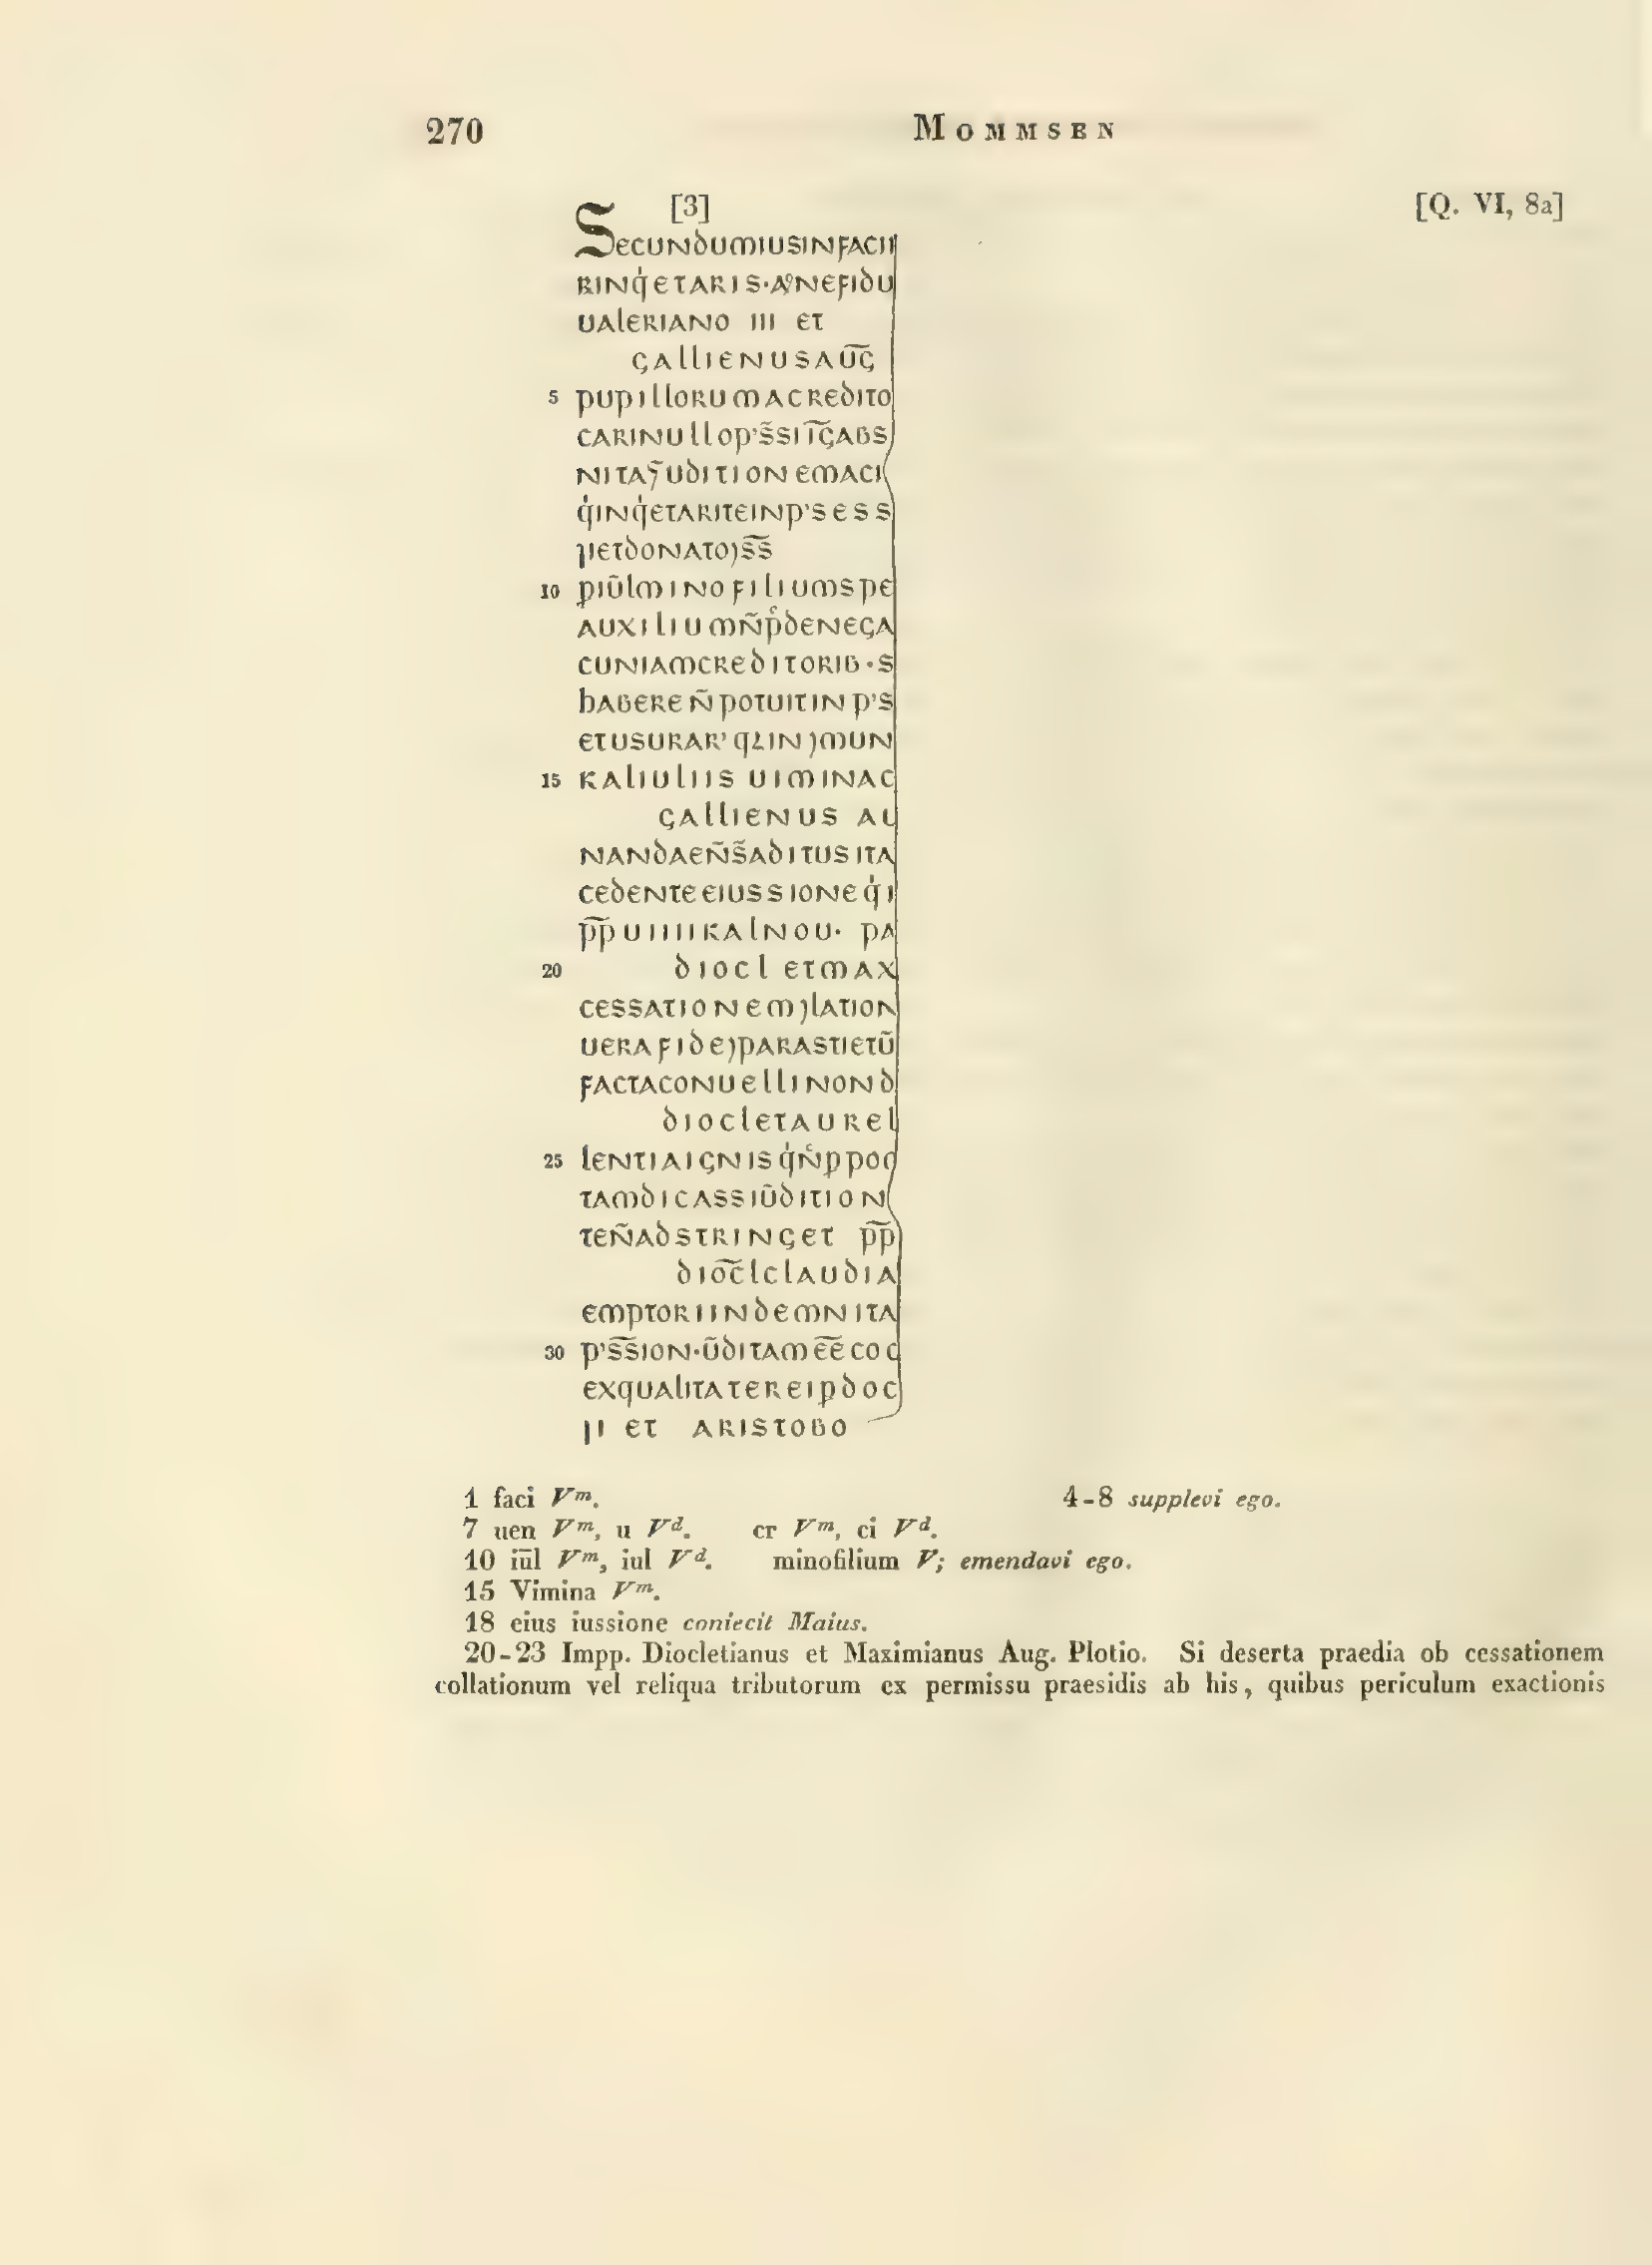 270 MOMMSEN
[3] [Q. VI, 8a]
SECUNDUMIUSINFACII
RINq̇ETARIS·A NEFIDU
UALERIANO III ET
GALLIENUSAŪḠ
5 PUPILLORUMACREDITO
CARINULLOP'S̄SIĪḠABS
NITA UDITIONEMACI
q̇INq̇ETARITEINP'SESS
ꞁIETDONATO)S̄S̄
10 PIŪLMINOFILIUMSPE
AUXILIUMÑP̊DENEGA
CUNIAMCREDITORIB·S
hABEREÑPOTUITINP'S
ETUSURAR' IN)MUN
15 KALIULIIS UIMINAC
GALLIENUS AU
NANDAEÑS̃ADITUSITA
CEDENTEEIUSSIONEq̇I
P̄P̄UIIIIKALNOU· PA
20 DIOCL ETMAX
CESSATIONEM)LATION
UERAFIDE)PARASTIETŪ
FACTACONUELLINOND
DIOCLETAUREL
25 LENTIAIGNISq̇N̊PPOC
TAMDICASSIŪDITION
TEÑADSTRINGET P̄P̄
DIOC̄LCLAUDIA
EMPTORIINDEMNITA
30 P'S̄S̄ION·ŪDITAMĒĒCOC
EXQUALITATEREIPDOC
ꞁI ET ARISTOBO
1 faci Vm. 4-8 supplevi ego.
7 uen Vm, u Vd. cr Vm, ci Vd.
10 iūl Vm, iul Vd. minofilium V; emendavi ego.
15 Vimina Vm.
18 eius iussione coniecit Maius.
20-23 Impp. Diocletianus et Maximianus Aug. Plotio. Si deserta praedia ob cessationem
collationum vel reliqua tributorum ex permissu praesidis ab his, quibus periculum exactionis